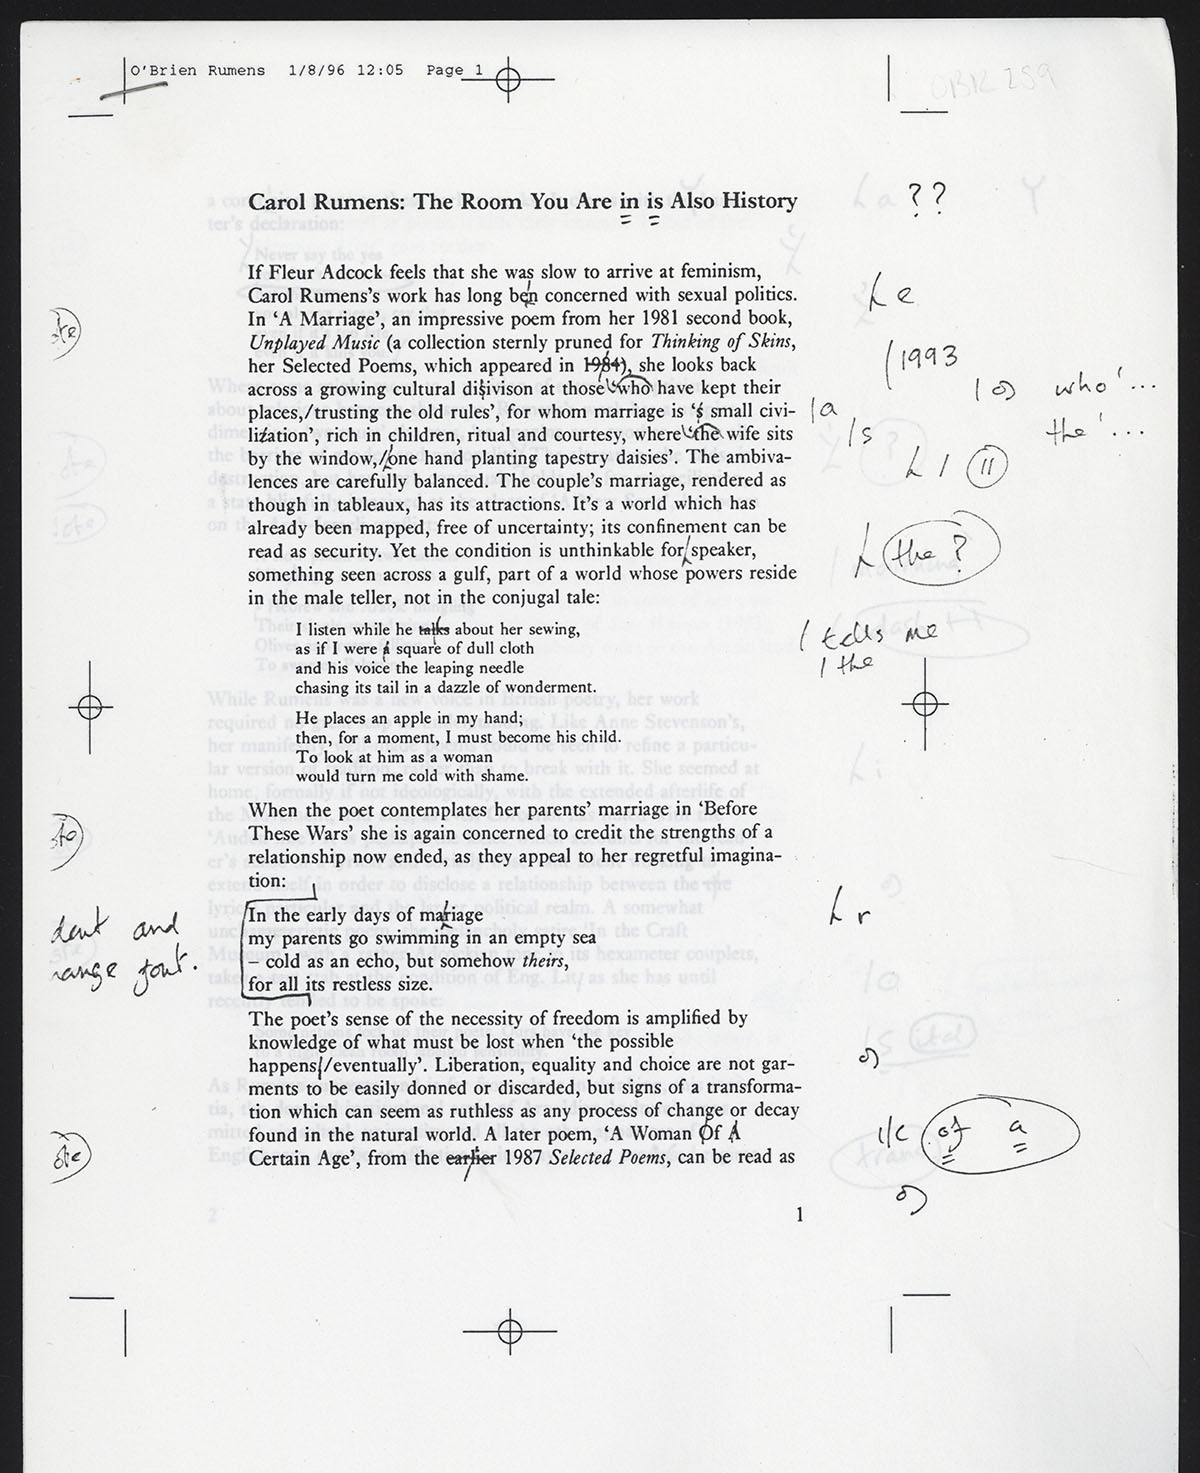 O'Brien Rumens 1/8/96 12:05 Page 1
OBR 259
Carol Rumens: The Room You Are in is Also History
??
If Fleur Adcock feels that she was slow to arrive at feminism,
Carol Rumens's work has long ben concerned with sexual politics.
e
In ‘A Marriage’, an impressive poem from her 1981 second book,
ste
Unplayed Music (a collection sternly pruned for Thinking of Skins,
her Selected Poems, which appeared in 1984), she looks back
1993
across a growing cultural disivison at those ‘who have kept their
who'...
places,/trusting the old rules’, for whom marriage is ‘s small civi-
a
lization’, rich in children, ritual and courtesy, where ‘the wife sits
s
the'...
by the window,/one hand planting tapestry daisies’. The ambiva-
lences are carefully balanced. The couple's marriage, rendered as
though in tableaux, has its attractions. It's a world which has
already been mapped, free of uncertainty; its confinement can be
read as security. Yet the condition is unthinkable for speaker,
the?
something seen across a gulf, part of a world whose powers reside
in the male teller, not in the conjugal tale:
I listen while he talks about her sewing,
tells me
as if I were a square of dull cloth
the
and his voice the leaping needle
chasing its tail in a dazzle of wonderment.
He places an apple in my hand;
then, for a moment, I must become his child.
To look at him as a woman
would turn me cold with shame.
When the poet contemplates her parents’ marriage in ‘Before
These Wars’ she is again concerned to credit the strengths of a
relationship now ended, as they appeal to her regretful imagina-
tion:
In the early days of mariage
r
dent and
my parents go swimming in an empty sea
– cold as an echo, but somehow theirs,
ange font.
for all its restless size.
The poet's sense of the necessity of freedom is amplified by
knowledge of what must be lost when ‘the possible
happens/eventually’. Liberation, equality and choice are not gar-
ments to be easily donned or discarded, but signs of a transforma-
tion which can seem as ruthless as any process of change or decay
found in the natural world. A later poem, ‘A Woman Of A
l/c of a
Certain Age’, from the earlier 1987 Selected Poems, can be read as
1